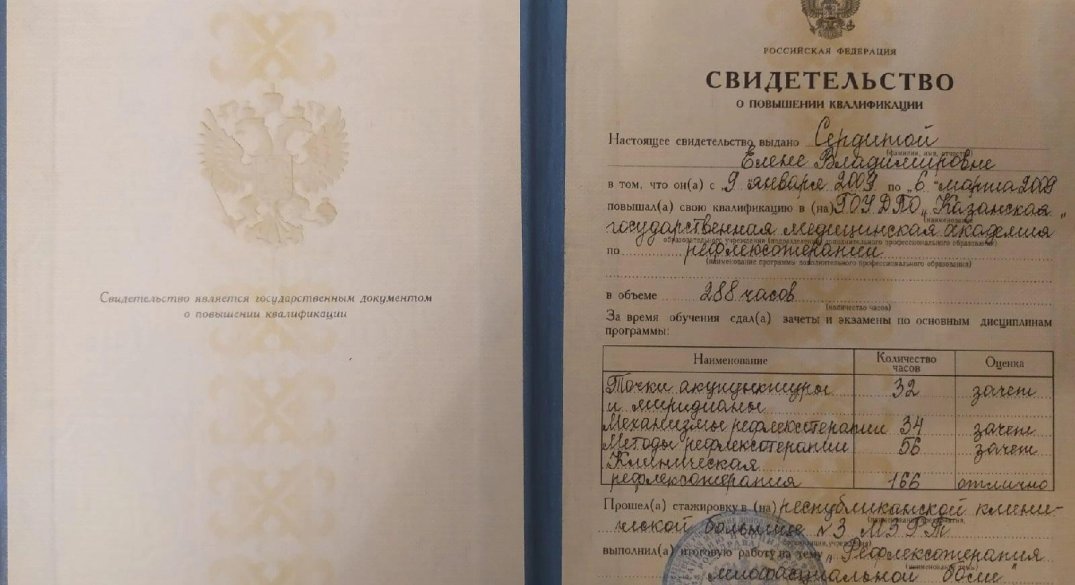 Свидетельство является государственным документом
о повышении квалификации
РОССИЙСКАЯ ФЕДЕРАЦИЯ
СВИДЕТЕЛЬСТВО
О ПОВЫШЕНИИ КВАЛИФИКАЦИИ
Настоящее свидетельство выдано Сердитой
(фамилия, имя, отчество)
Елене Владимировне
в том, что он(а) с „9“ января 2009 по „6“ марта 2009
повышал(а) свою квалификацию в (на) ГОУ ДПО „Казанская
(наименование
государственная медицинская академия“
образовательного учреждения (подразделения) дополнительного профессионального образования)
по рефлексотерапии
(наименование программы дополнительного профессионального образования)
в объеме 288 часов
(количество часов)
За время обучения сдал(а) зачеты и экзамены по основным дисциплинам
программы:
Наименование Количество часов Оценка
Точки акупунктуры
и меридианы 32 зачет
Механизмы рефлексотерапии 34 зачет
Методы рефлексотерапии 56 зачет
Клиническая
рефлексотерапия 166 отлично
Прошел(а) стажировку в (на) республиканской клини-
(наименование предприятия,
ческой больнице №3 МЗ РТ
организации, учреждения)
выполнил(а) итоговую работу на тему „Рефлексотерапия
(наименование темы)
миофасциальной боли“